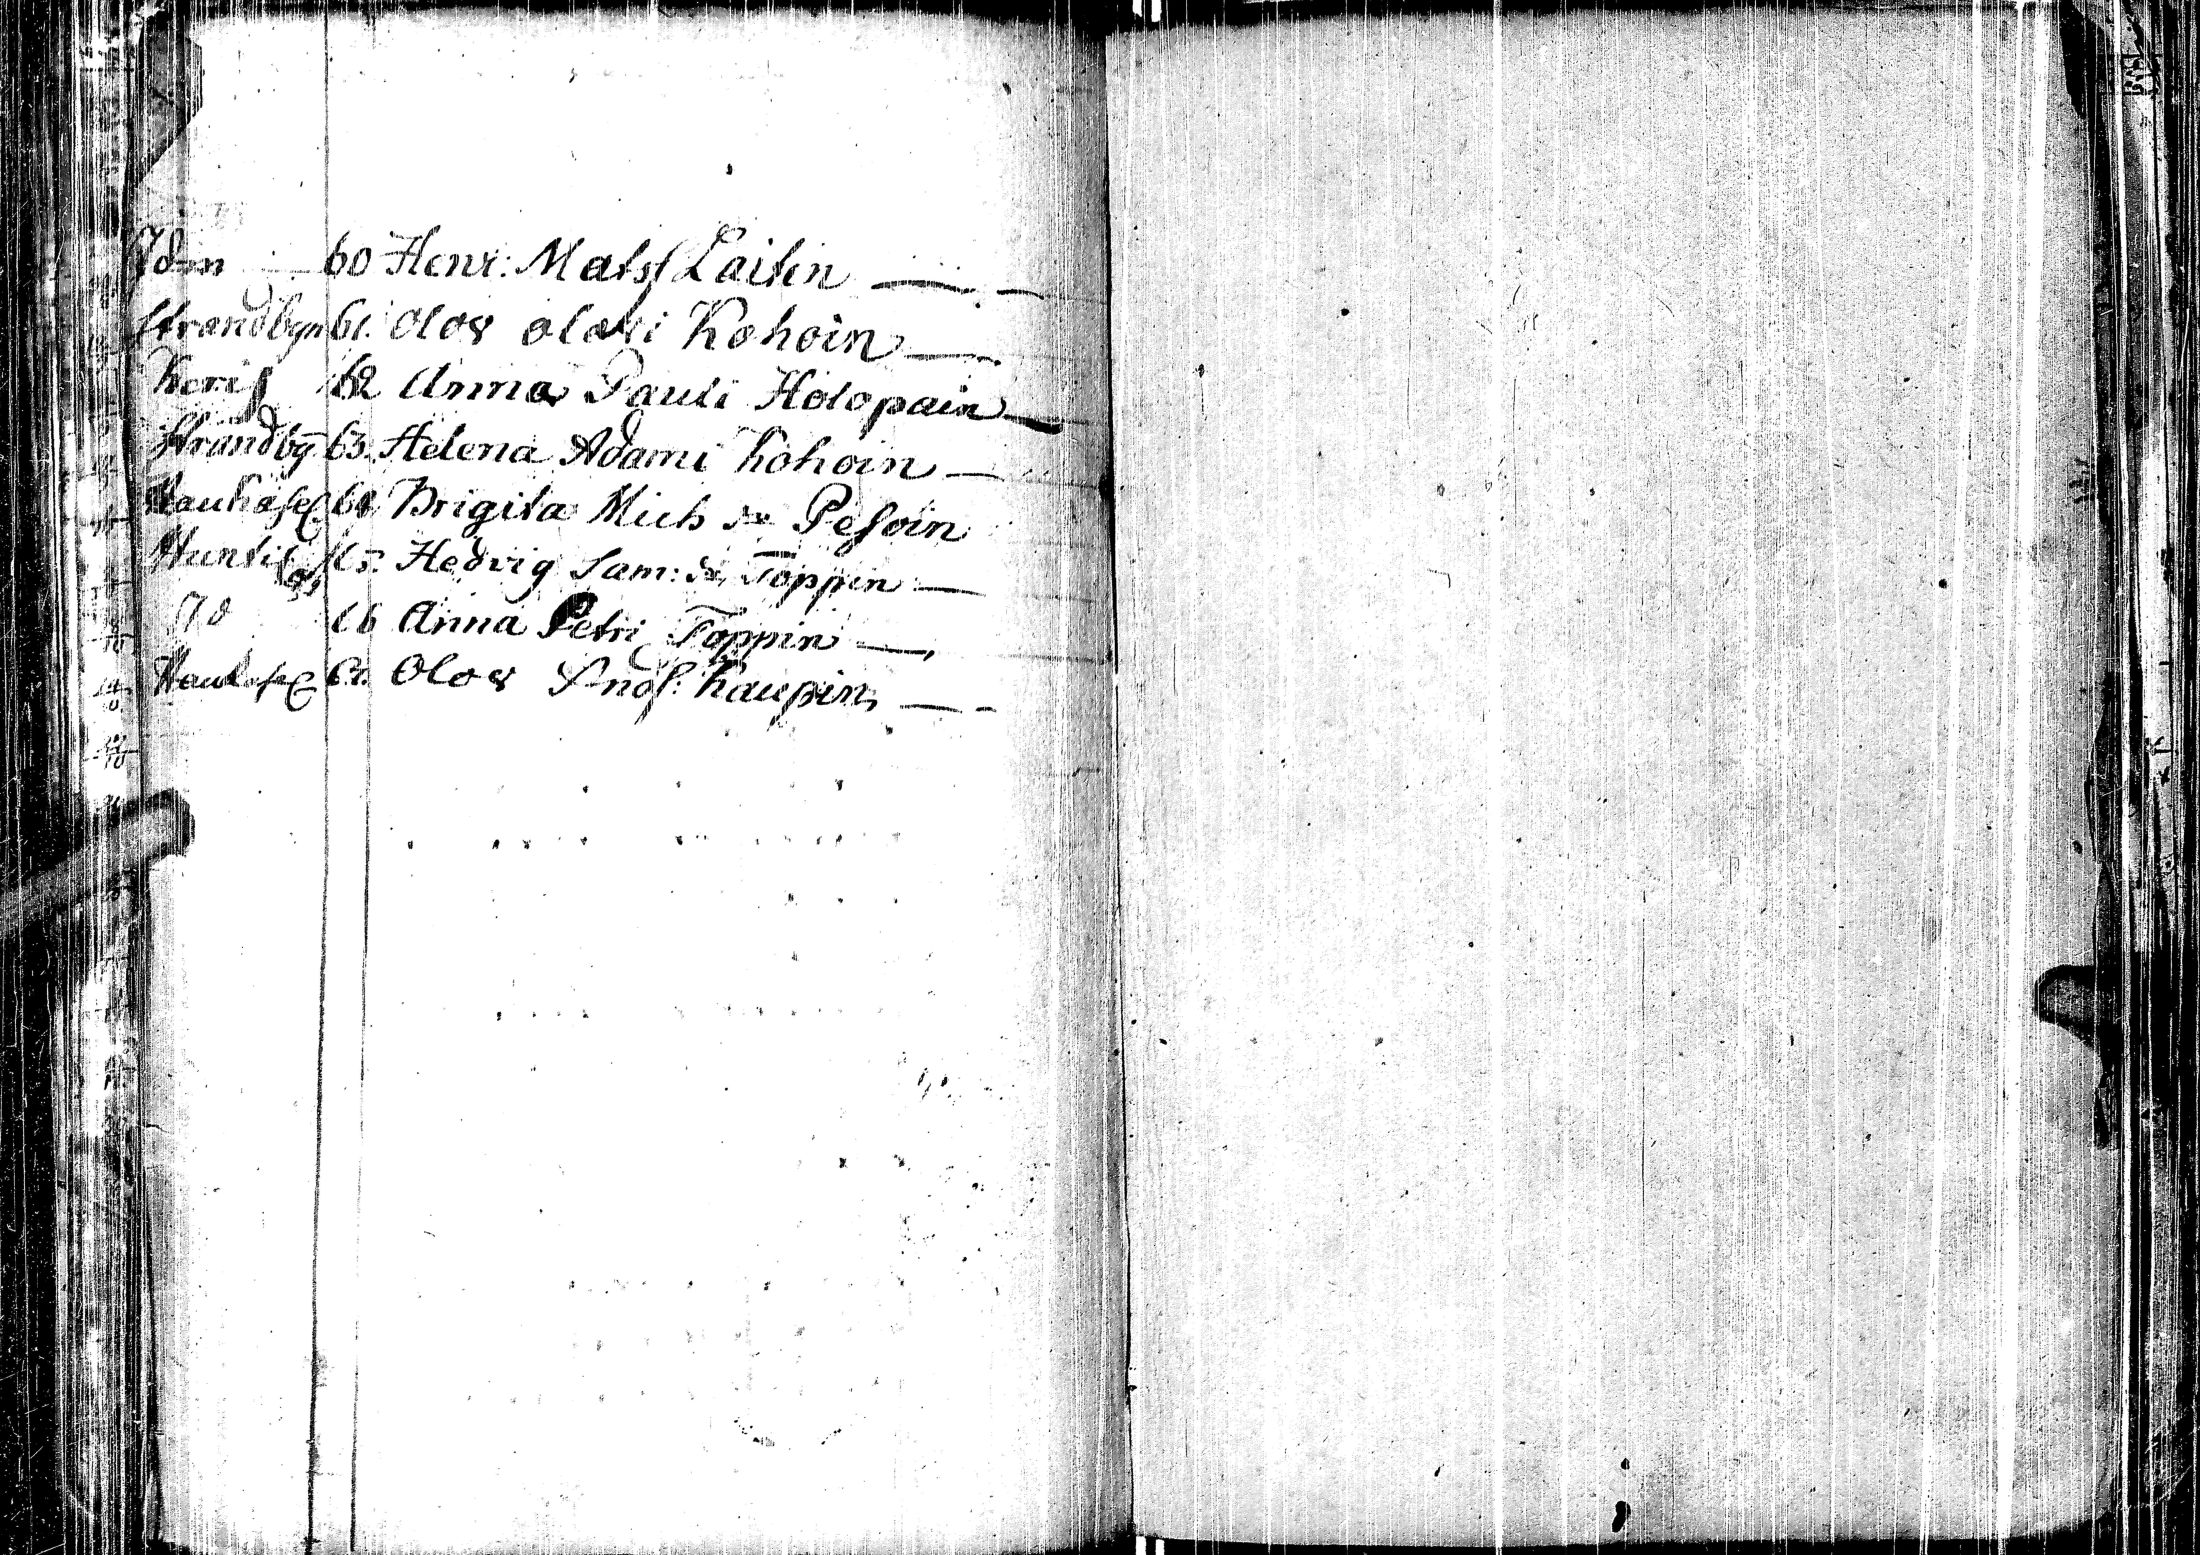 Idm 60 Henr: Matsſ Laitin
Strandbyn 61. Olof olavi Kohoin
Keriſ 62 Anna Pauli Holopain
Strandbÿ 63. Helena Adami Kohoin
64 Brigita Mich Dr Peſoin
65. Hedvig Sam: Dr Toppin
Id 66 Anna Petri Toppin
67. Olof Andſ: Kaupin